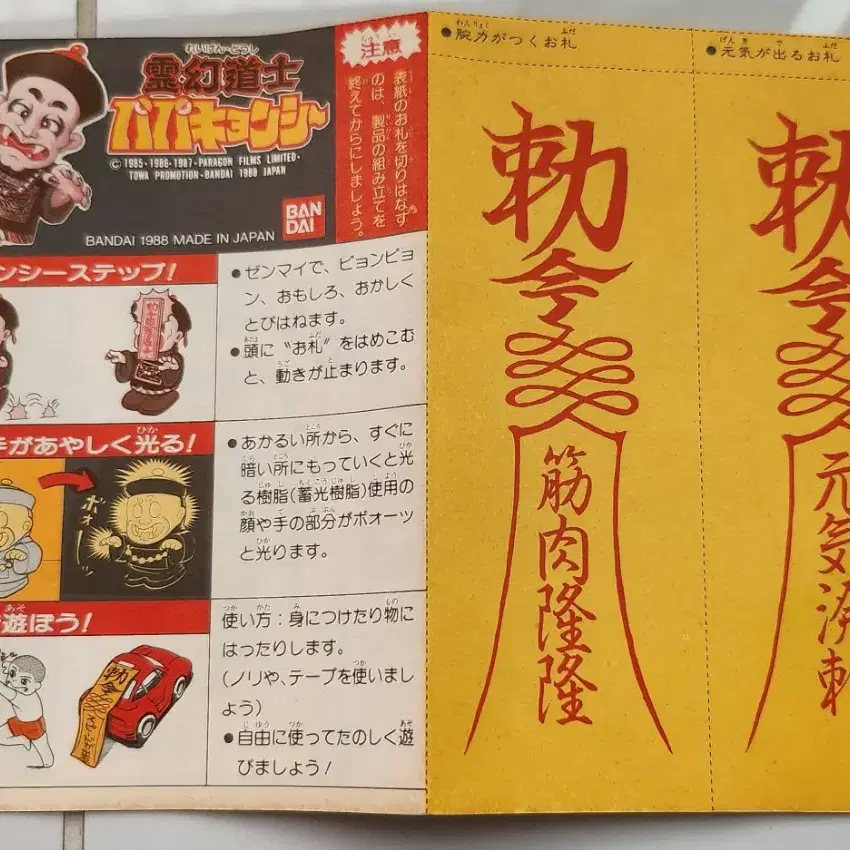 れいげん・どうし
霊・幻道士
パパキョンシー
© 1985・1986・1987・PARAGON FILMS LIMITED・
TOWA PROMOTION・BANDAI 1989 JAPAN
BANDAI 1988 MADE IN JAPAN
BAN
DAI
注意
表紙のお札を切りはなす
のは、製品の組み立てを
終えてからにしましょう。
ンシーステップ!
●ゼンマイで、ピョンピョ
ン、おもしろ、おかしく
とびはねます。
●頭に〝お札〟をはめこむ
と、動きが止まります。
手があやしく光る!
ボォーッ
●あかるい所から、すぐに
暗い所にもっていくと光
る樹脂(蓄光樹脂)使用の
顔や手の部分がボオーッ
と光ります。
遊ぼう!
勅令
使い方:身につけたり物に
はったりします。
(ノリや、テープを使いまし
ょう)
●自由に使ってたのしく遊
びましょう!
●腕力がつくお札
勅令
筋肉隆隆
●元気が出るお札
勅令
元気